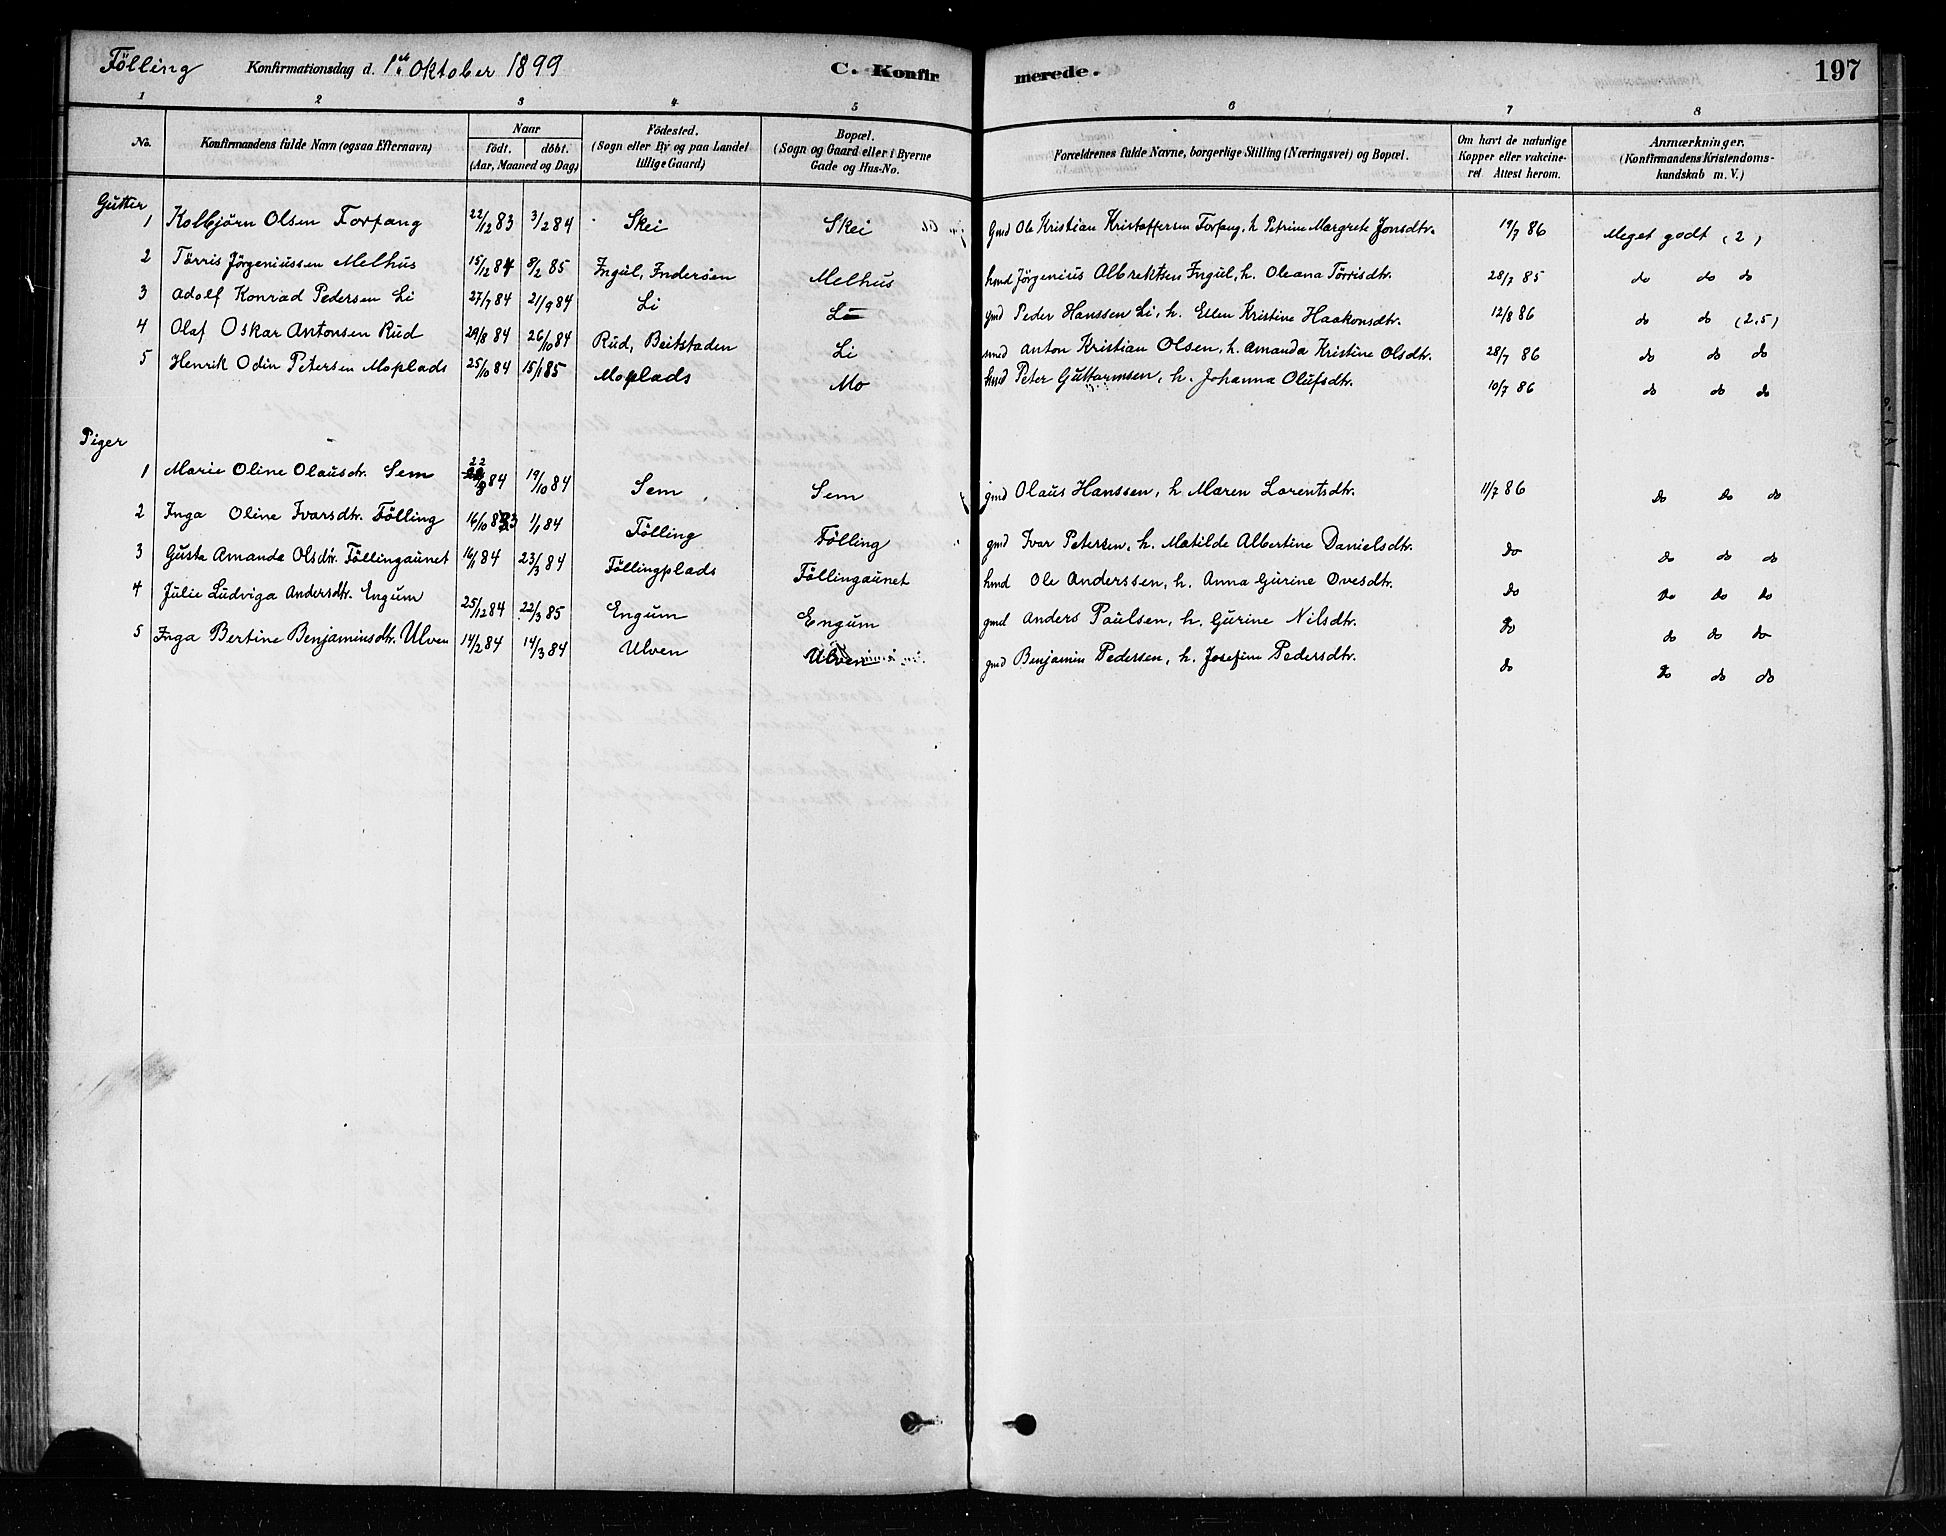 Fölling Konfirmationsdag d. 1ste Oktober 1899 C. Konfirmerede. 197
1 2 3 4 5 6 7 8
No. Konfirmandens fulde Navn (ogsaa Efternavn) Naar födt. döbt. (Aar, Maaned og Dag) Födested. (Sogn eller By og paa Landet tillige Gaard) Bopæl. (Sogn og Gaard eller i Byerne Gade og Hus-No. Forældrenes fulde Navne, borgerlige Stilling (Næringsvei) og Bopæl. Om havt de naturlige Kopper eller vakcineret. Attest herom. Anmærkninger. (Konfirmandens Kristendomskundskab m. V.)
Gutter
1 Kolbjörn Olsen Forfang 22/12 83 3/2 84 Skei Skei Gmd Ole Kristian Kristoffersen Forfang, h. Petrine Margrete Jonsdtr. 19/7 86 Meget godt (2)
2 Törris Jörgeniussen Melhus 15/12 84 8/2 85 Ingul, Inderøen Melhus hmd Jörgenius Albrektsen Ingul, h. Oleana Törrisdtr. 28/7 85 do do do
3 Adolf Konrad Pedersen Li 27/7 84 21/9 84 Li Li gmd Peder Hanssen Li, h. Ellen Kristine Haakonsdtr. 12/8 86 do do (2,5)
4 Olaf Oskar Antonsen Rud 29/8 84 26/10 84 Rud, Beitstaden Li smed Anton Kristian Olsen, h. Amanda Kristine Olsdtr. 28/7 86 do do do
5 Henrik Odin Petersen Moplads 25/10 84 15/1 85 Moplads Mo hmd Peter Guttormsen, h. Johanna Olufsdtr. 10/7 86 do do do
Piger
1 Marie Oline Olausdtr. Sem 22/8 84 19/10 84 Sem Sem gmd Olaus Hanssen, h. Maren Lorentsdtr. 11/7 86 do do do
2 Inga Oline Ivarsdtr. Fölling 16/10 83 1/1 84 Fölling Fölling gmd Ivar Petersen, h. Matilde Albertine Danielsdtr. do do do do
3 Gusta Amanda Olsdtr. Föllingaunet 16/1 84 23/3 84 Föllingplads Föllingaunet hmd Ole Anderssen, h. Anna Gurine Ovesdtr. do do do do
4 Julie Ludviga Andersdtr. Engum 25/12 84 22/3 85 Engum Engum gmd Anders Paulsen, h. Gurine Nilsdtr. do do do do
5 Inga Bertine Benjaminsdtr. Ulven 14/2 84 14/3 84 Ulven Ulven gmd Benjamin Pedersen, h. Josefine Pedersdtr. do do do do